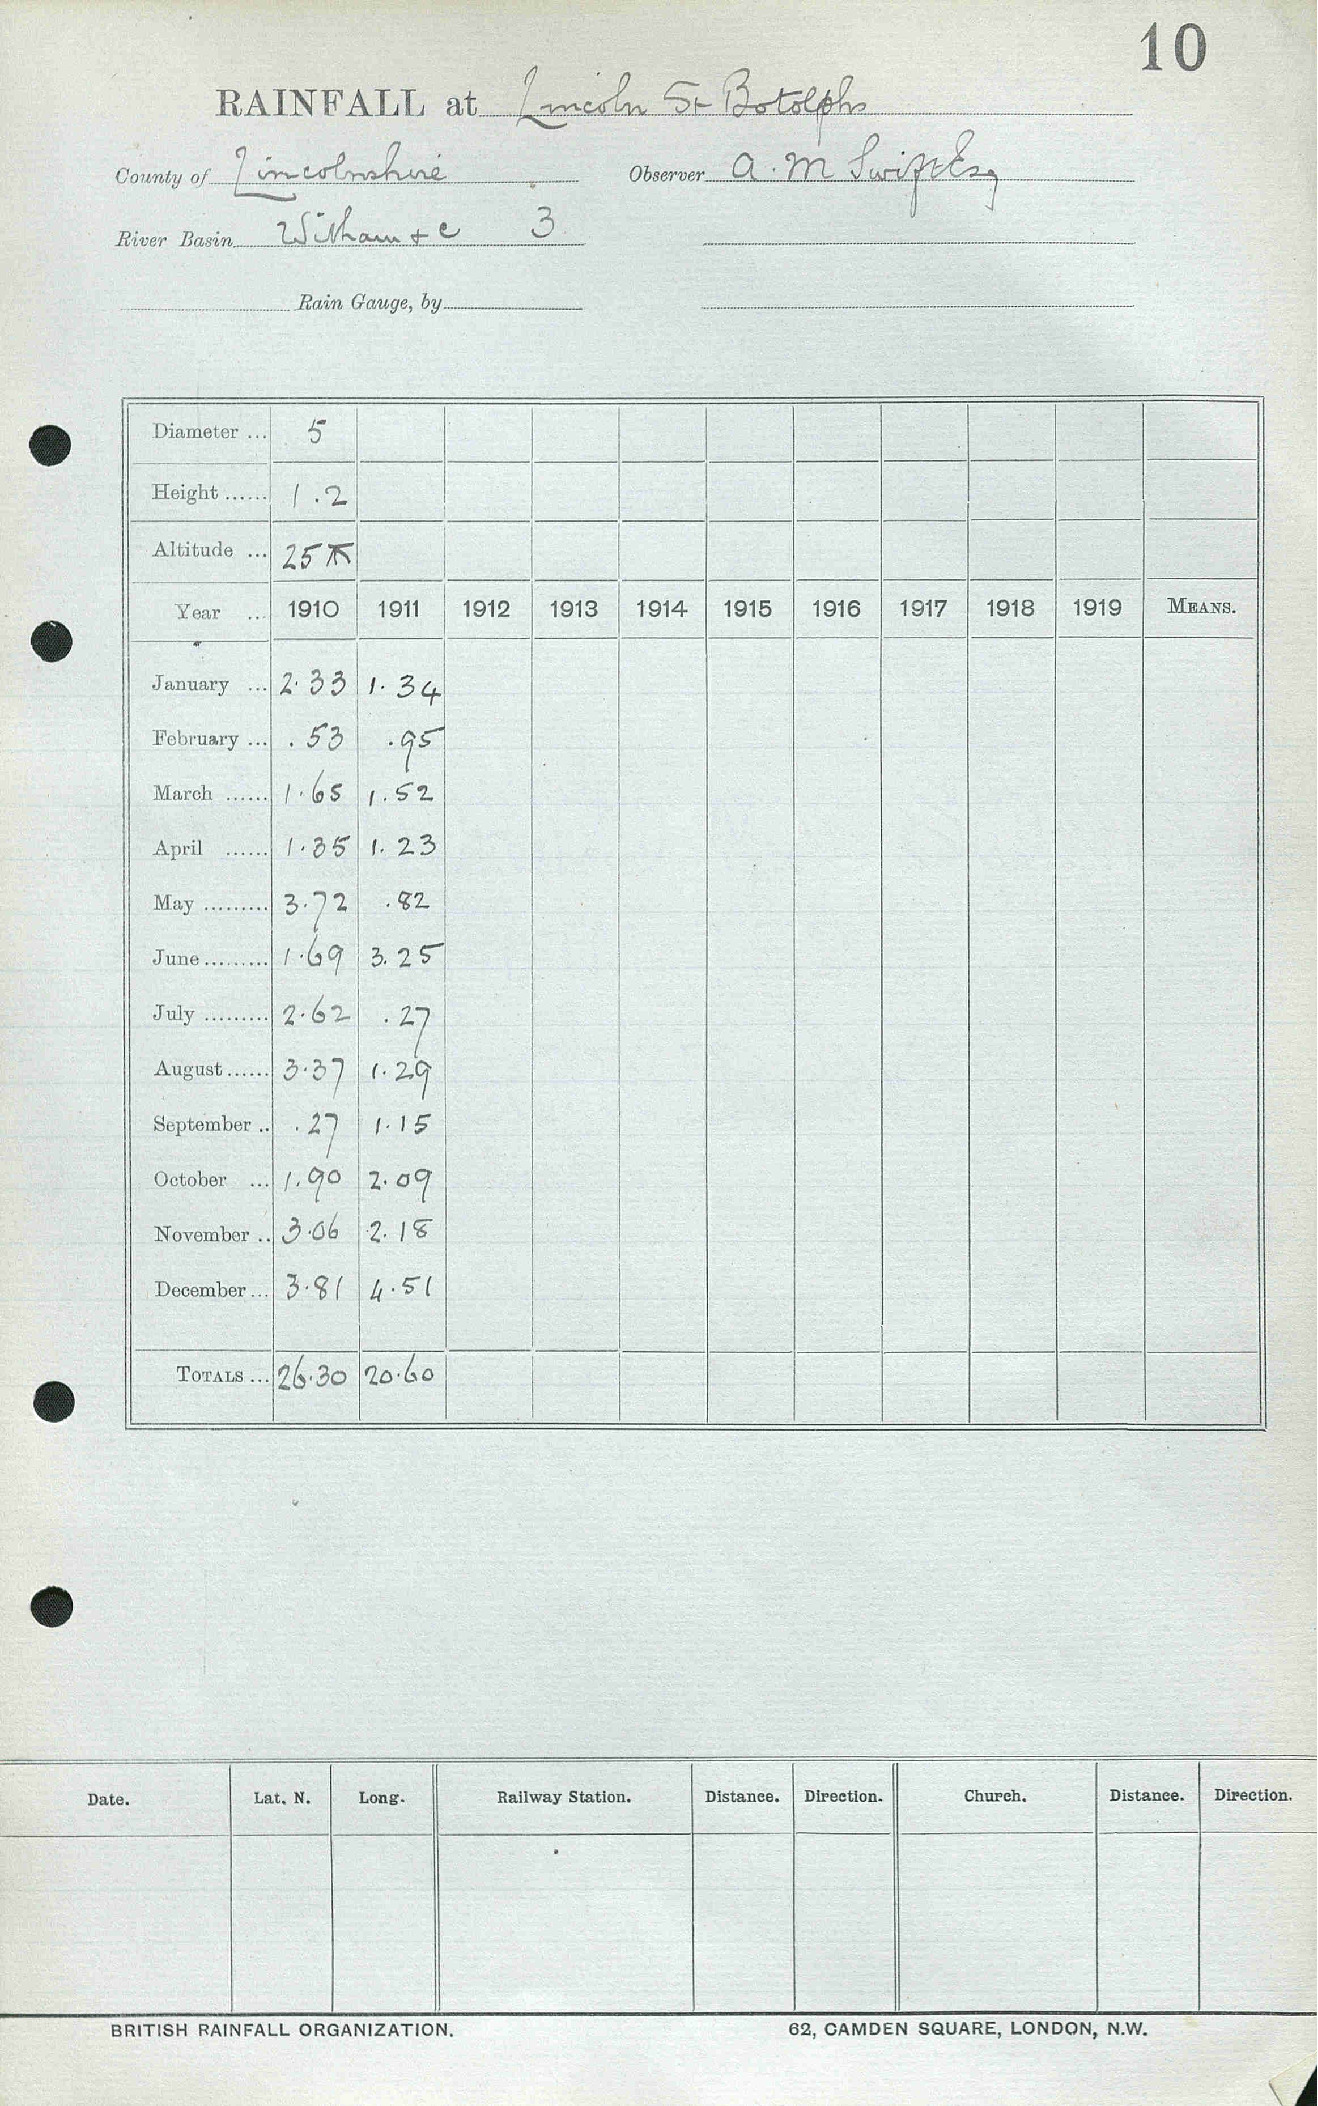 10
RAINFALL at Lincoln St Botolphs
County of Lincolnshire Observer A. M Swift Esq
River Basin Witham + c 3
Rain Gauge, by
Diameter ... 5
Height ...... 1.2
Altitude ... 25
Year ... 1910 1911 1912 1913 1914 1915 1916 1917 1918 1919 MEANS.
January ... 2.33 1.34
February ... .53 .95
March ...... 1.65 1.52
April ...... 1.35 1.23
May ......... 3.72 .82
June ......... 1.69 3.25
July ......... 2.62 .27
August ...... 3.37 1.29
September .. .27 1.15
October ... 1.90 2.09
November .. 3.06 2.18
December ... 3.81 4.51
TOTALS ... 26.30 20.60
Date. Lat. N. Long. Railway Station. Distance. Direction. Church. Distance. Direction.
BRITISH RAINFALL ORGANIZATION. 62, CAMDEN SQUARE, LONDON, N.W.